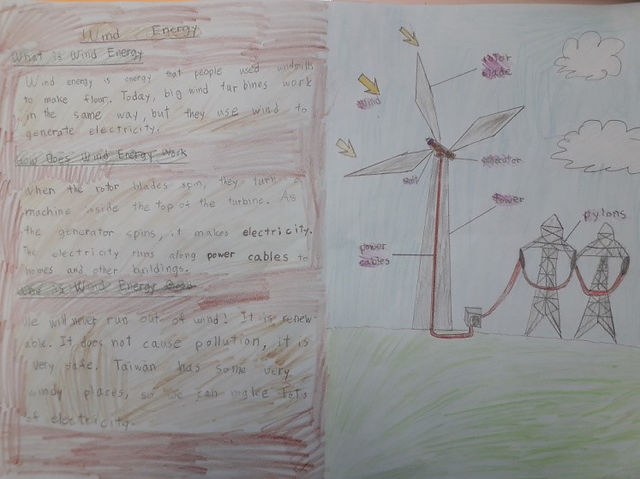 Wind Energy
What is Wind Energy
Wind energy is energy that people used windmills
to make flour. Today, big wind turbines work
in the same way, but they use wind to
generate electricity.
How Does Wind Energy Work
When the rotor blades spin, they turn a
machine inside the top of the turbine. As
the generator spins, it makes electricity.
The electricity runs along power cables to
homes and other buildings.
is Wind Energy
We will never run out of wind! It is renew-
able. It does not cause pollution, it is
very safe. Taiwan has some very
windy places, so we can make lots
of electricity.
rotor
blade
wind
generator
tower
power
cables
pylons